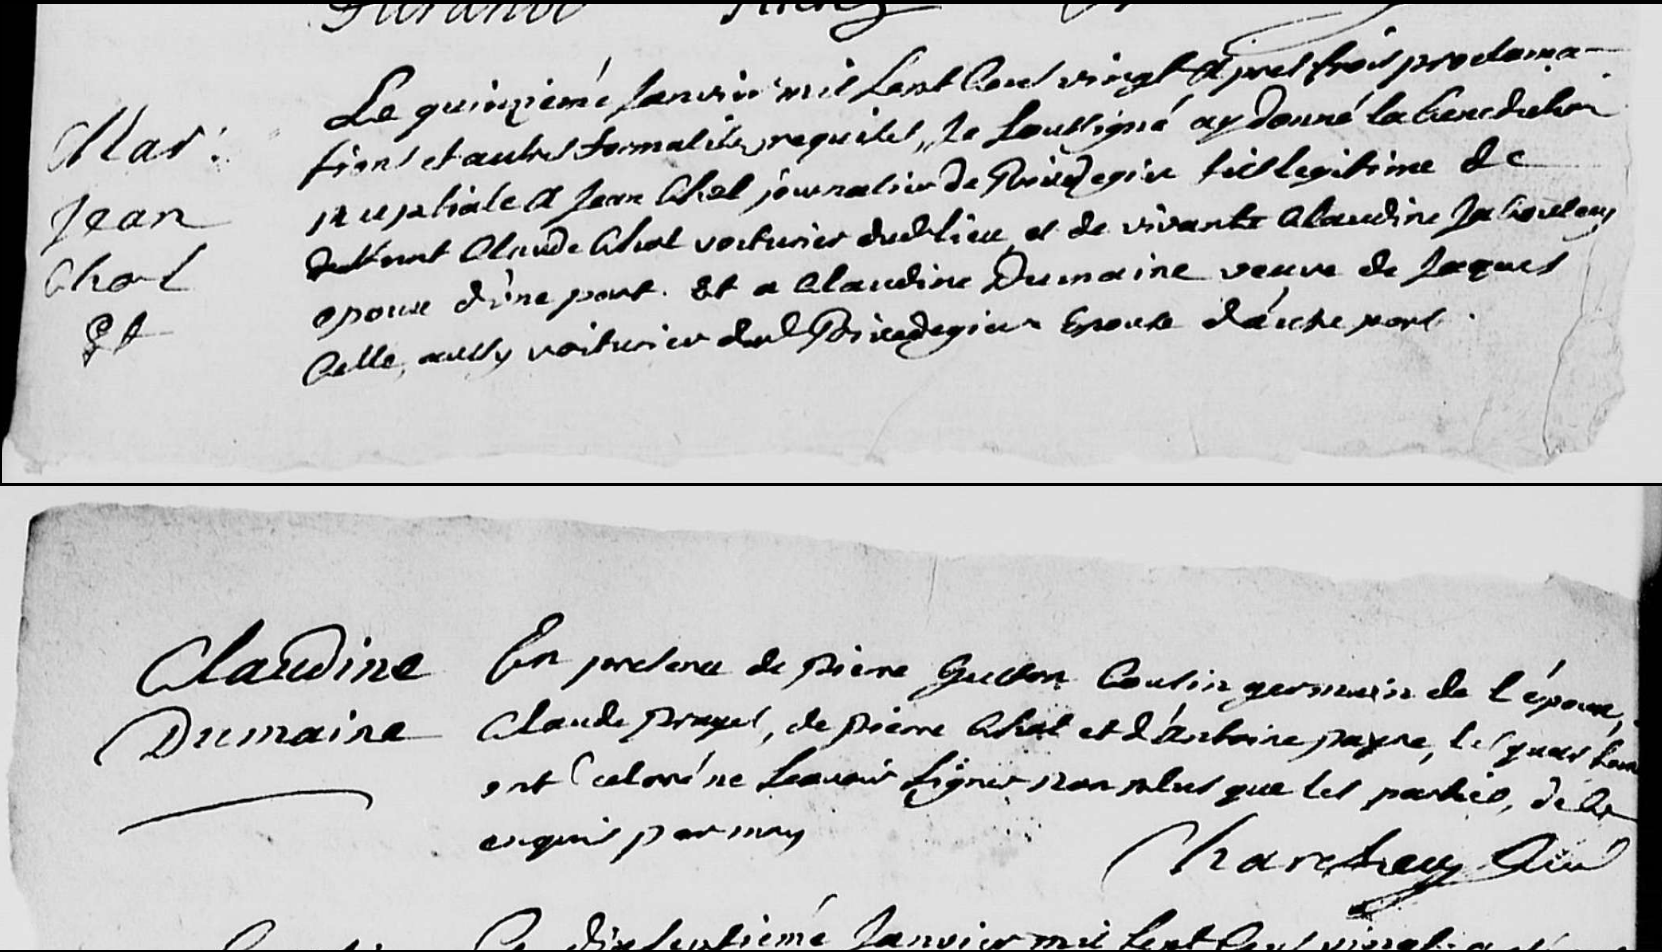 Mar:
Jean
Chol
Et
Le quinzieme Janvier mil sept cens vingt apres trois proclama-
tions et autres formalites requises, Je soussigné ay donné la benediction
nuptiale a Jean Chol journalier de Rivedegier fils legitime de
deffunt Claude Chol voiturier dud lieu et de vivante Claudine
epoux d'une part. Et a Claudine Dumaine veuve de Jaques
Celle, aussy voiturier dud Rivedegier Epouse d'autre part.
Claudine
Dumaine
En presence de pierre Guitton Cousin germain de l'épouse,
Claude , de pierre Chol et d'Antoine payre, lesquels
ont declaré ne scavoir signer non plus que les parties, de ce
enquis par moy
Charcheuy Curé
Le dixseptiemé Janvier mil sept cens vingt